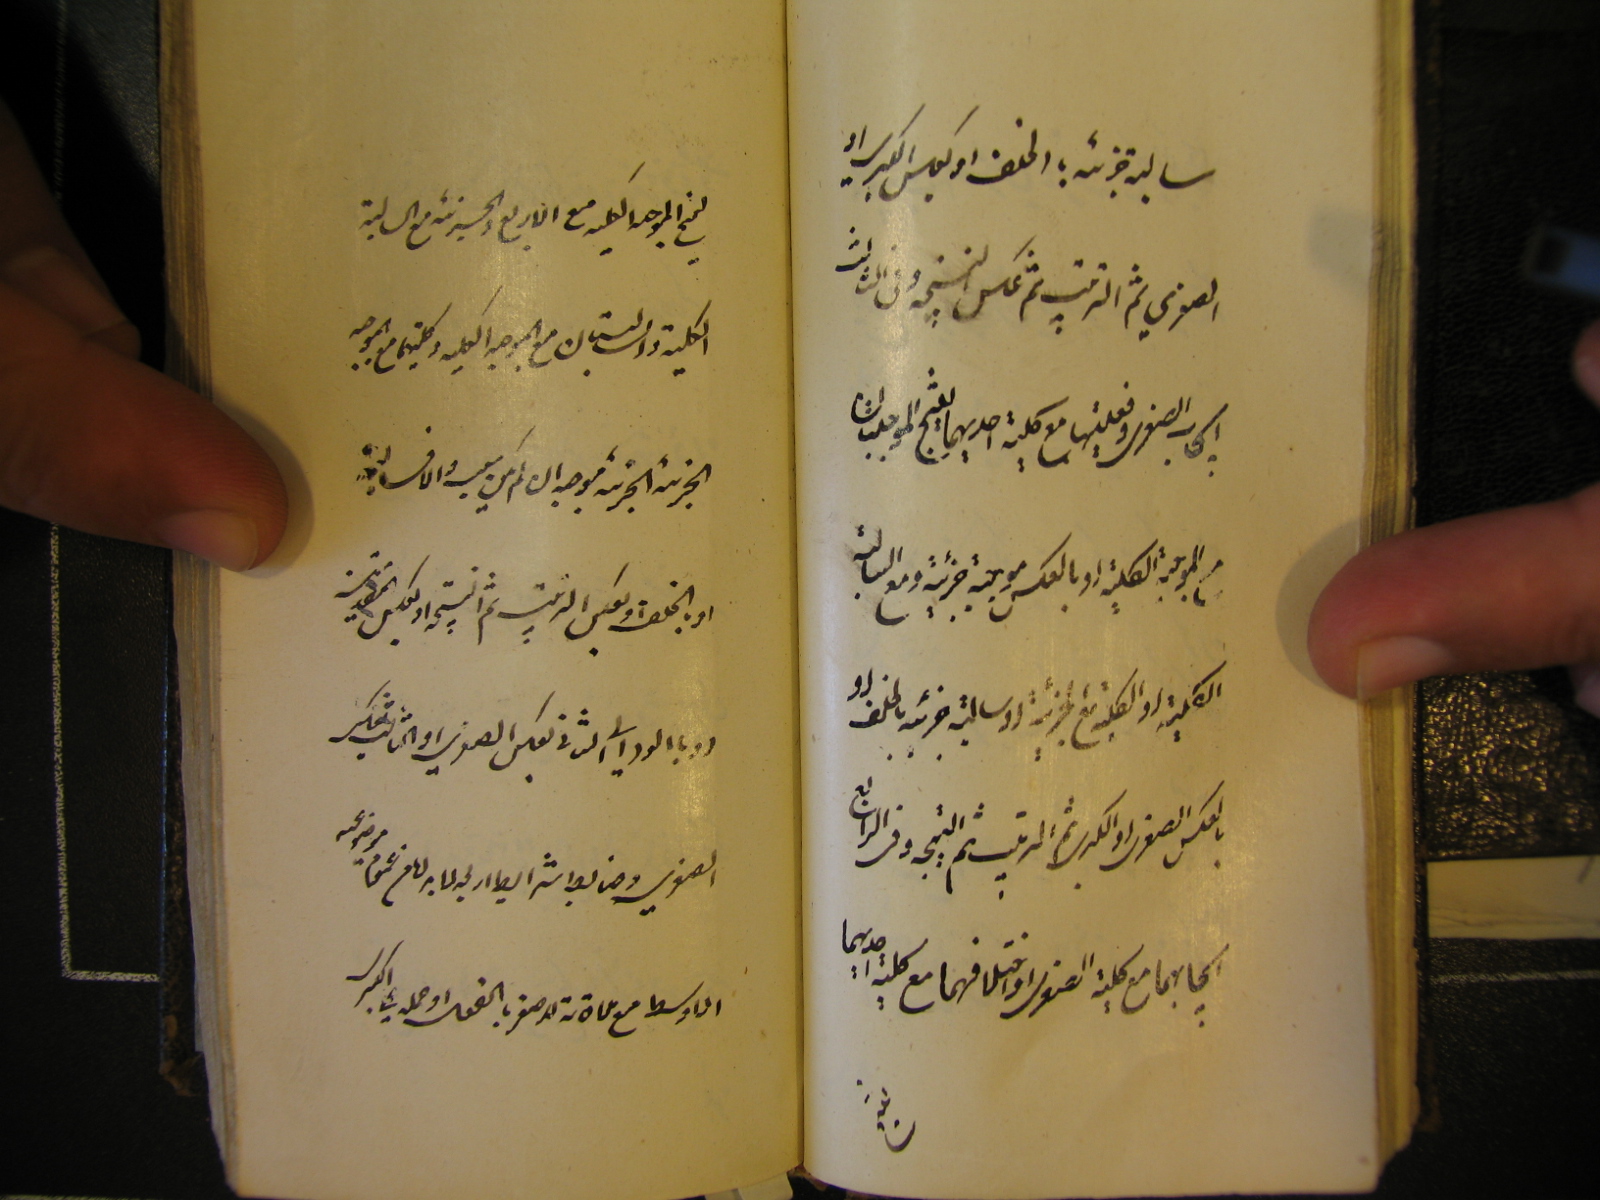 سالبة جزئية بالخلف او بعكس الكبرى او
الصغرى ثم الترتيب ثم عكس النتيجة وفى الثالث
ايجاب الصغرى وفعليتها مع كلية احديهما لينتج الموجبتان
مع الموجبة الكلية او بالعكس موجبة جزئية ومع السالبة
الكلية او الكلية مع الجزئية سالبة جزئية بالخلف او
بعكس الصغرى او الكبرى ثم الترتيب ثم النتيجة وفى الرابع
ايجابهما مع كلية الصغرى او اختلافهما مع كلية احديهما
لينتج
لينتج الموجبة الكلية مع الاربع والجزئية مع السالبة
الكلية والسالبتان مع الموجبة الكلية وكليتهما مع الموجبة
الجزئية جزئية موجبة ان لم يكن بسلب والا فسالبة
او بالخلف او بعكس الترتيب ثم النتيجة او بعكس المقدمتين
او بالرد الى الثانى بعكس الصغرى او الثالث بعكس
الصغرى وضابطة شرايط الاربعة انه لابد اما من عموم موضوعية
الاوسط مع ملاقاته للاصغر بالفعل او حمله على الاكبر